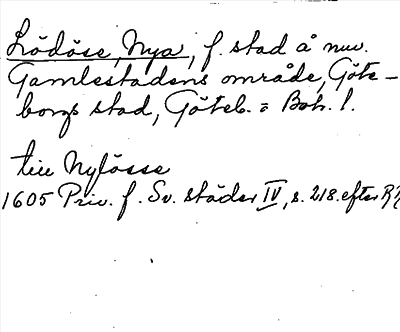 Lödöse, Nya, f. stad å nuv.
Gamlestadens område, Göte-
borgs stad, Göteb. = Boh. l.
till Nylösse
1605 Priv. f. Sv. städer IV, s. 218. efter RR